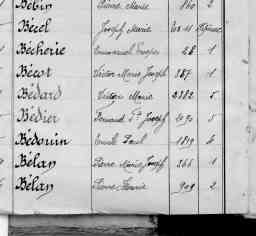 Bébin Pierre Marie 860 2
Bécel Joseph Marie
Bécherie Emmanuel 28 1
Bécot Victor Marie Joseph 287 1
Bédard Victor Marie 2382 5
Bédier Fernand Joseph 1490 5
Bédouin Emile Paul 1819 4
Bélan Pierre Marie Joseph 266 1
Bélan Pierre Marie 909 2